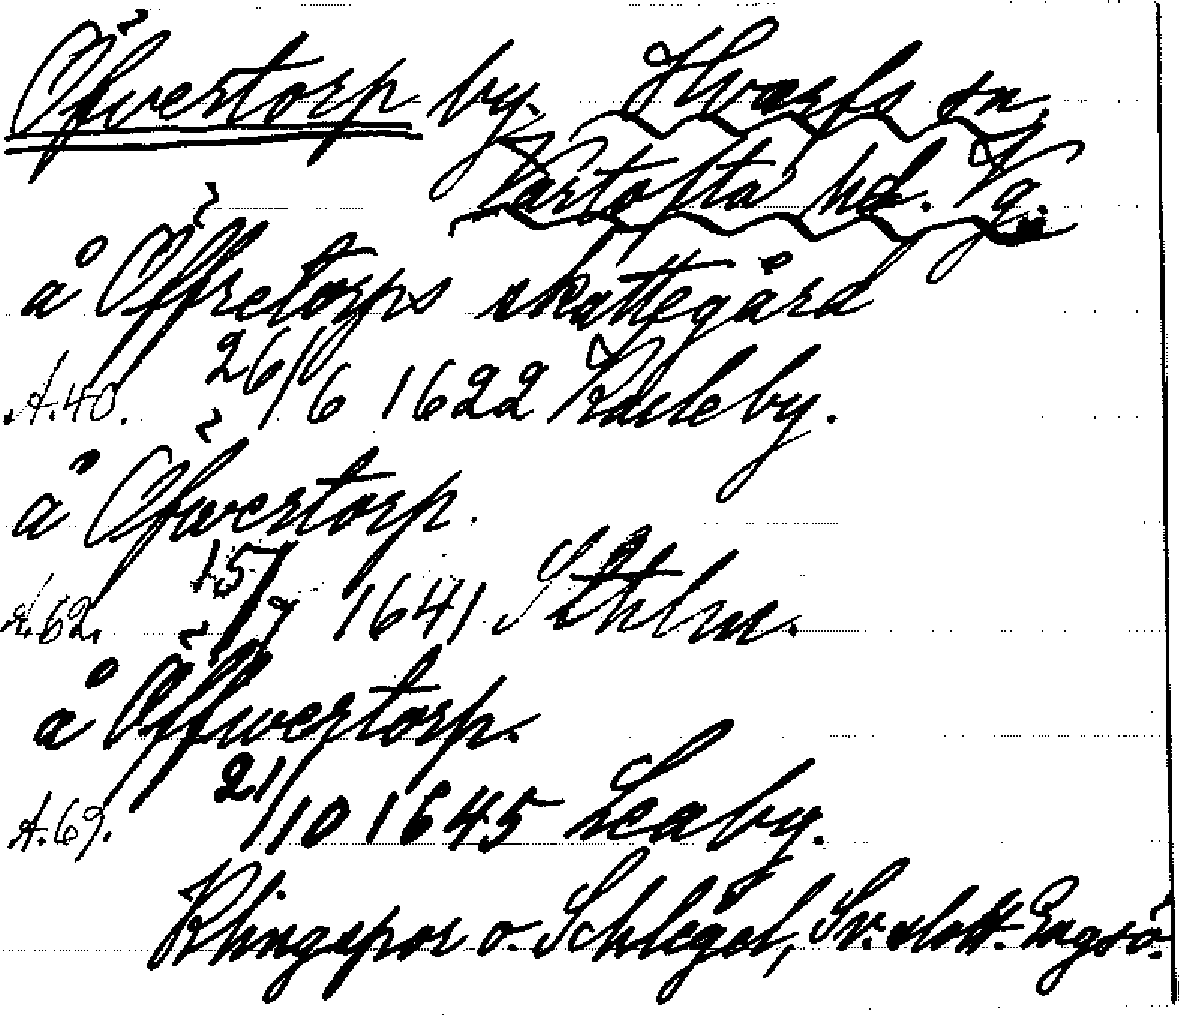 Öfwertorp by, Hvarfs sn,
Vartofta hd. Vg.
å Öffretorps skattegård
A.40. 26/6 1622 Kasleby.
å Öfwertorp.
A.62. 15/7 1641 Sthlm.
å Öffwertorp.
A.69. 21/10 1645 Leaby.
Klingspor o. Schlegel, Sv. slott. Engsö.